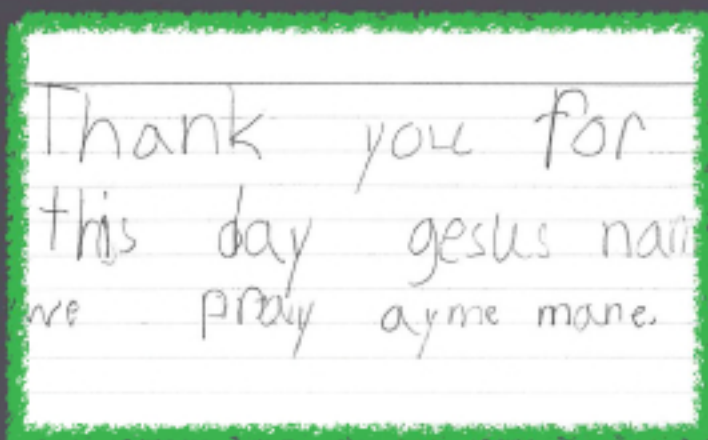 Thank you for
this day gesus nam
we pray ayme mane.